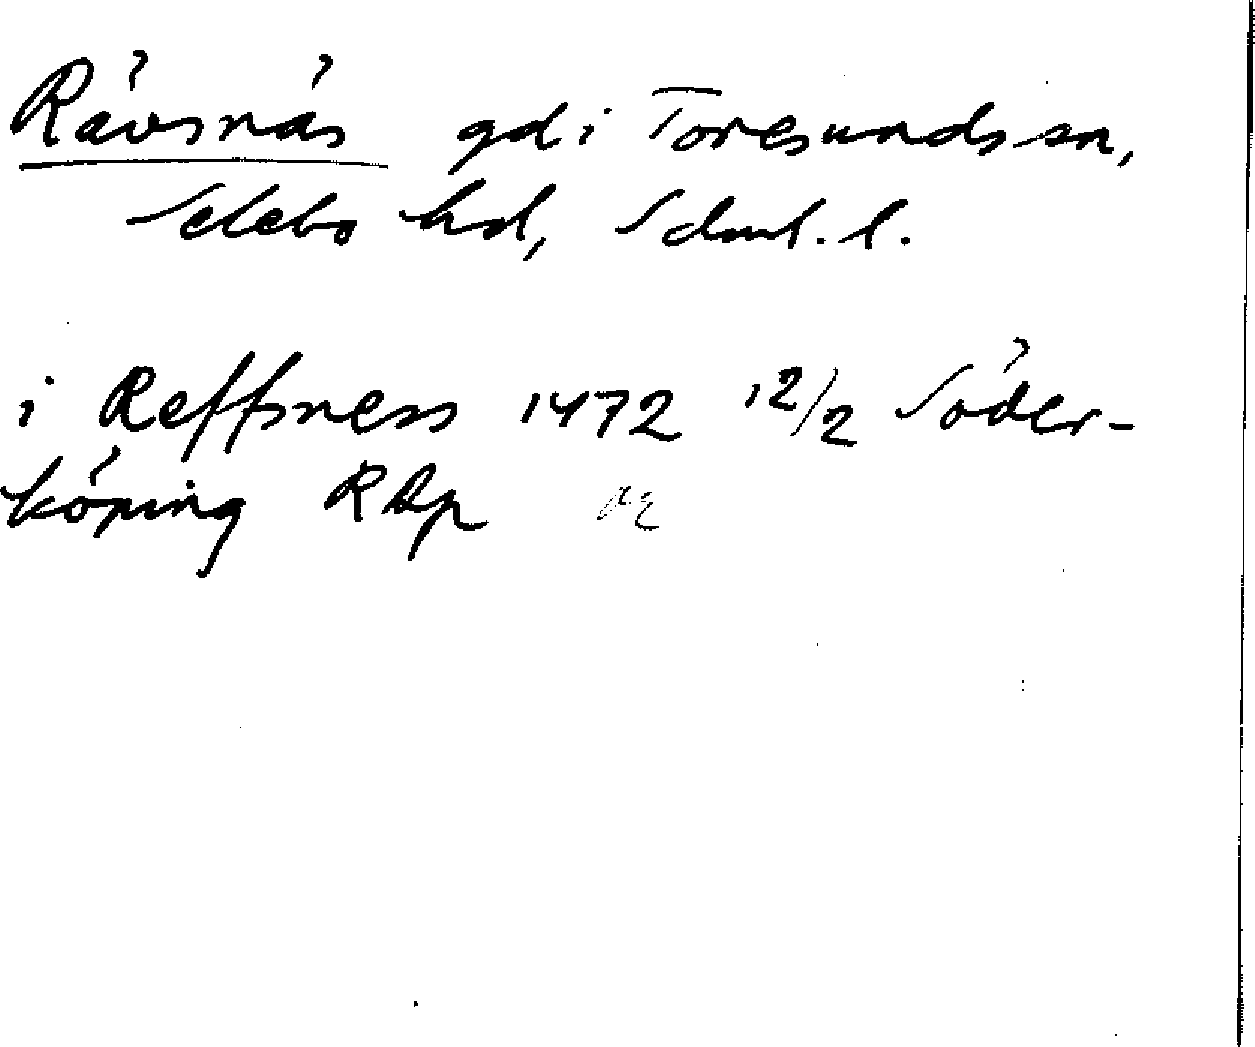 Rävsnäs gd i Toresunds sn,
Selebo hd, Sdml. l.
i Reffsness 1472 12/2 Söder-
köping RAp